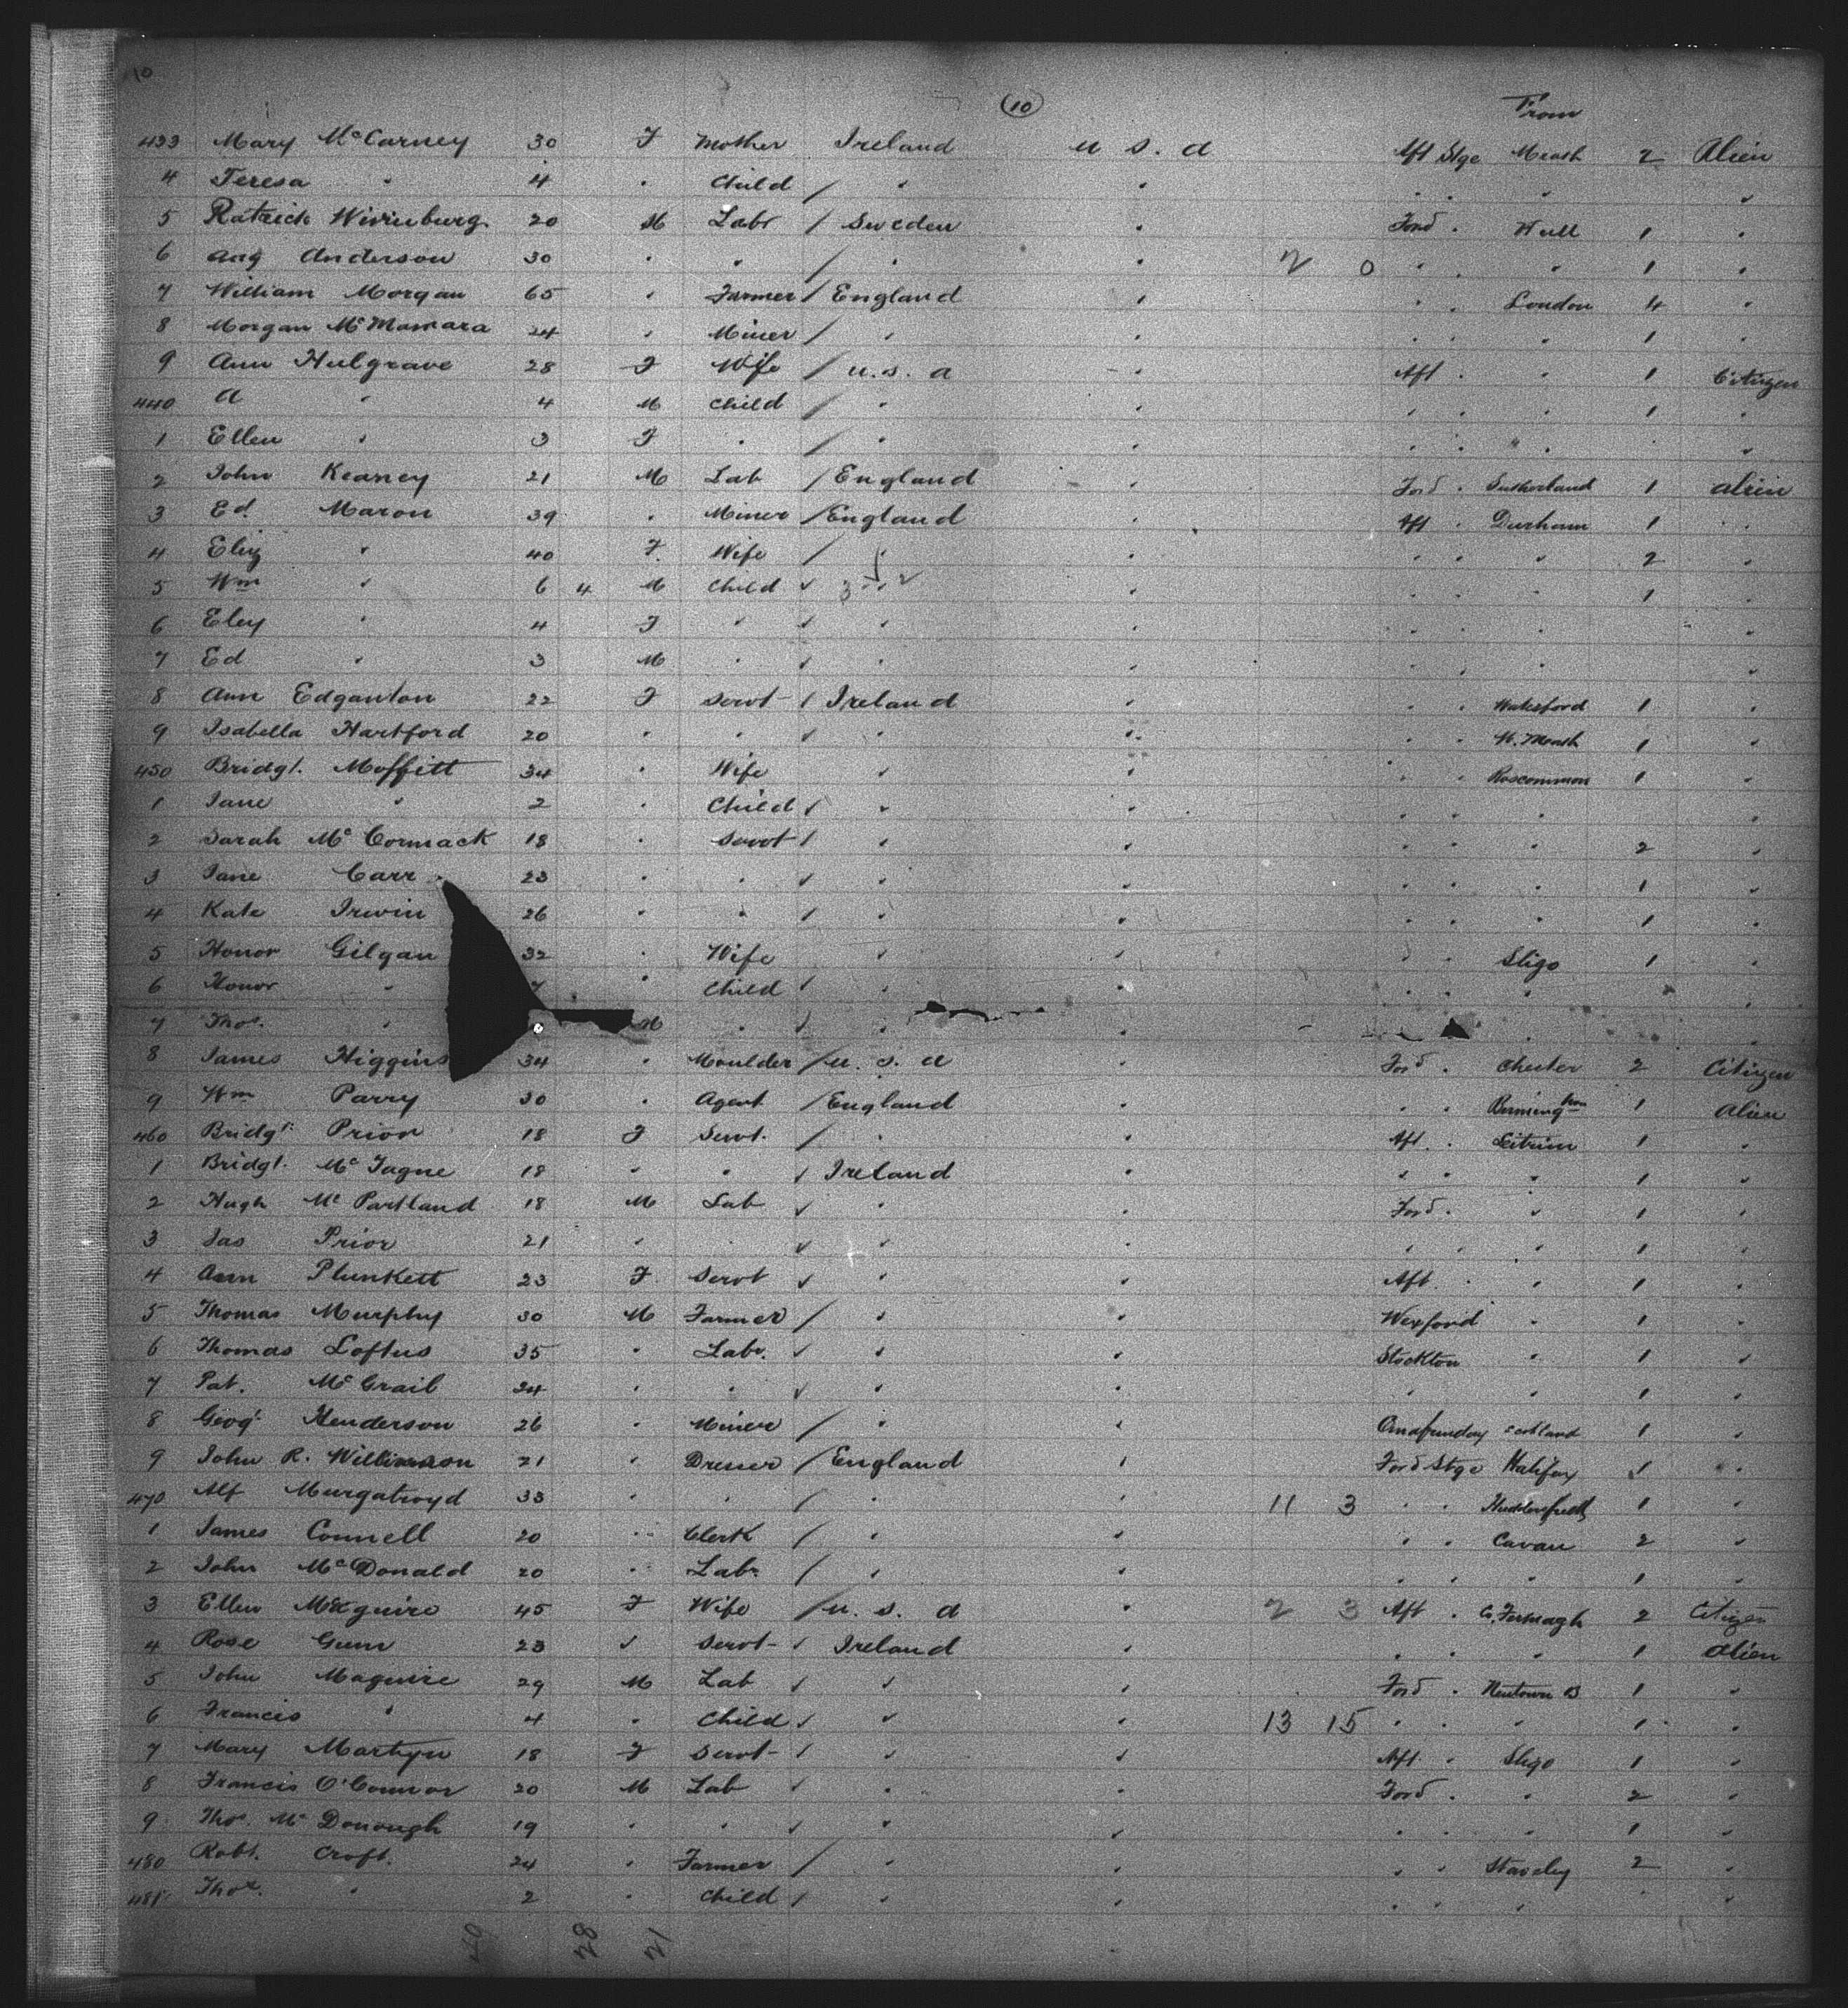 10
(10)
From
433 Mary McCarney 30 F Mother Ireland U S. A Aft Stge Meath 2 Alien
4 Teresa " 4 " Child / " " " " " "
5 Patrick 20 M Labr / Sweden " Ford " Hull 1 "
6 Aug Anderson 30 " " / " " 2 0 " " " 1 "
7 William Morgan 65 " Farmer / England " " " London 4 "
8 Morgan McMamara 24 " Miner / " " " " " 1 "
9 Ann Hulgrave 28 F Wife / U.S. A " Aft " " 1 Citizen
440 A " 4 M Child / " " " " " 1 "
1 Ellen " 3 F " / " " " " " "
2 John Kearney 21 M Lab / England " Ford " Sutherland 1 Alien
3 Ed. Maron 39 " Miner / England " Aft " Durham 1 "
4 Eliz " 40 F Wife / " " " " " 2 "
5 Wm " 6 4 M Child / 3 " " " " 1 "
6 Eliz " 4 F " / " " " " " "
7 Ed " 3 M " / " " " " " "
8 Ann Edganton 22 F Servt / Ireland " " " Waterford 1 "
9 Isabella Hartford 20 " " / " " " " W. Meath 1 "
450 Bridgt. Moffitt 34 " Wife " " " " Roscommon 1 "
1 Jane " 2 " Child / " " " " " "
2 Sarah McCormack 18 " Servt / " " " " " 2 "
3 Jane Carr 23 " " / " " " " " 1 "
4 Kate Irwin 26 " " / " " " " " 1 "
5 Honor Gilgan 32 " Wife " " " " Sligo 1 "
6 Honor " 7 " Child / " " " " " "
7 Thos. " M " / " " "
8 James Higgins 34 " Moulder / U. S. A " Ford " Chester 2 Citizen
9 Wm Parry 30 " Agent / England " " " Birmingham 1 Alien
460 Bridgt. Prior 18 F Servt. / " " Aft " Leitrim 1 "
1 Bridgt. McTague 18 " " / Ireland " " " " 1 "
2 Hugh McPartland 18 M Lab / " " Ford " " 1 "
3 Jas Prior 21 " " / " " " " " 1 "
4 Ann Plunkett 23 F Servt / " " Aft " " 1 "
5 Thomas Murphy 30 M Farmer / " " Wexford " 1 "
6 Thomas Loftus 35 " Labr. / " " Stockton " 1 "
7 Pat. McGrail 24 " " / " " " " 1 "
8 Geog. Henderson 26 " Miner / " " Scotland 1 "
9 John R. Willinson 21 " Dresser / England " Ford Stge Halifax 1 "
470 Alf Murgatroyd 33 " " / " " 11 3 " " Huddersfield 1 "
1 James Connell 20 " Clerk / " " " " Cavan 2 "
2 John McDonald 20 " Labr / " " " " " 1 "
3 Ellen Maguire 45 F Wife / U. S. A " 2 3 Aft " Co. Fermagh 2 Citizen
4 Rose Gunn 23 " Servt / Ireland " " " " 1 Alien
5 John Maguire 29 M Lab / " " Ford " Newtown B 1 "
6 Francis " 4 " Child / " " 13 15 " " " 1 "
7 Mary Martyn 18 F Servt / " " Aft " Sligo 1 "
8 Francis O'Connor 20 M Lab / " " Ford " " 2 "
9 Thos. McDonough 19 " " / " " " " " 1 "
480 Robt. Croft. 24 " Farmer / " " " " Staveley 2 "
481 Thos. " 2 " Child / " " " " " "
28 21